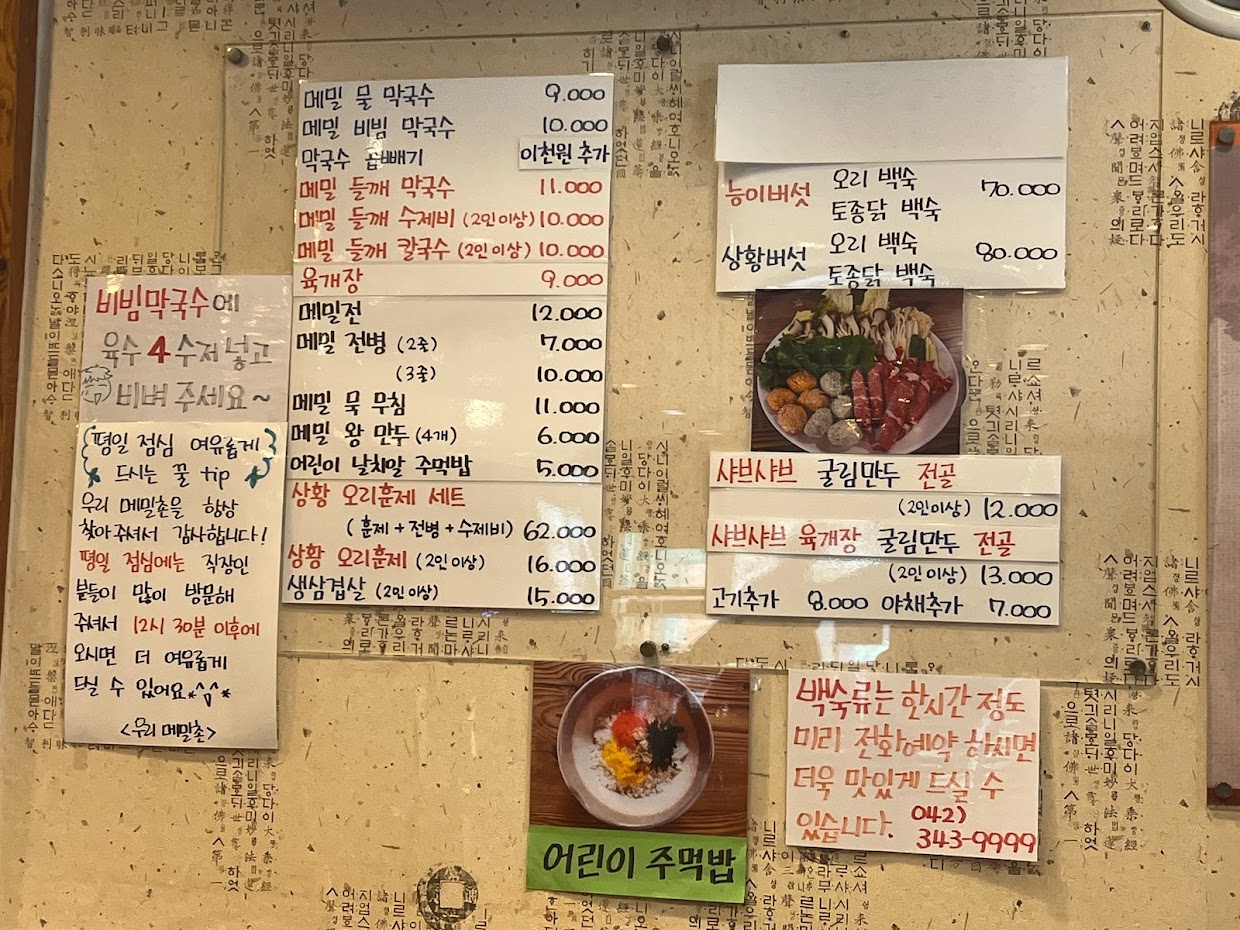 메밀 물 막국수 9.000
메밀 비빔 막국수 10.000
막국수 곱빼기 이천원 추가
메밀 들깨 막국수 11.000
메밀 들깨 수제비 (2인 이상) 10.000
메밀 들깨 칼국수 (2인 이상) 10.000
육개장 9.000
메밀전 12.000
메밀 전병 (2줄) 7.000
(3줄) 10.000
메밀 묵 무침 11.000
메밀 왕 만두 (4개) 6.000
어린이 날치알 주먹밥 5.000
상황 오리훈제 세트
(훈제+전병+수제비) 62.000
상황 오리훈제 (2인 이상) 16.000
생삼겹살 (2인 이상) 15.000
능이버섯 오리 백숙 70.000
토종닭 백숙
상황버섯 오리 백숙 80.000
토종닭 백숙
샤브샤브 굴림만두 전골
(2인 이상) 12.000
샤브샤브 육개장 굴림만두 전골
(2인 이상) 13.000
고기추가 8.000 야채추가 7.000
비빔막국수에
육수 4 수저 넣고
비벼 주세요~
평일 점심 여유롭게
드시는 꿀 tip
우리 메밀촌을 항상
찾아주셔서 감사합니다!
평일 점심에는 직장인
분들이 많이 방문해
주셔서 12시 30분 이후에
오시면 더 여유롭게
드실 수 있어요*^^*
<우리 메밀촌>
어린이 주먹밥
백숙류는 한시간 정도
미리 전화예약 하시면
더욱 맛있게 드실 수
있습니다. 042)
343-9999